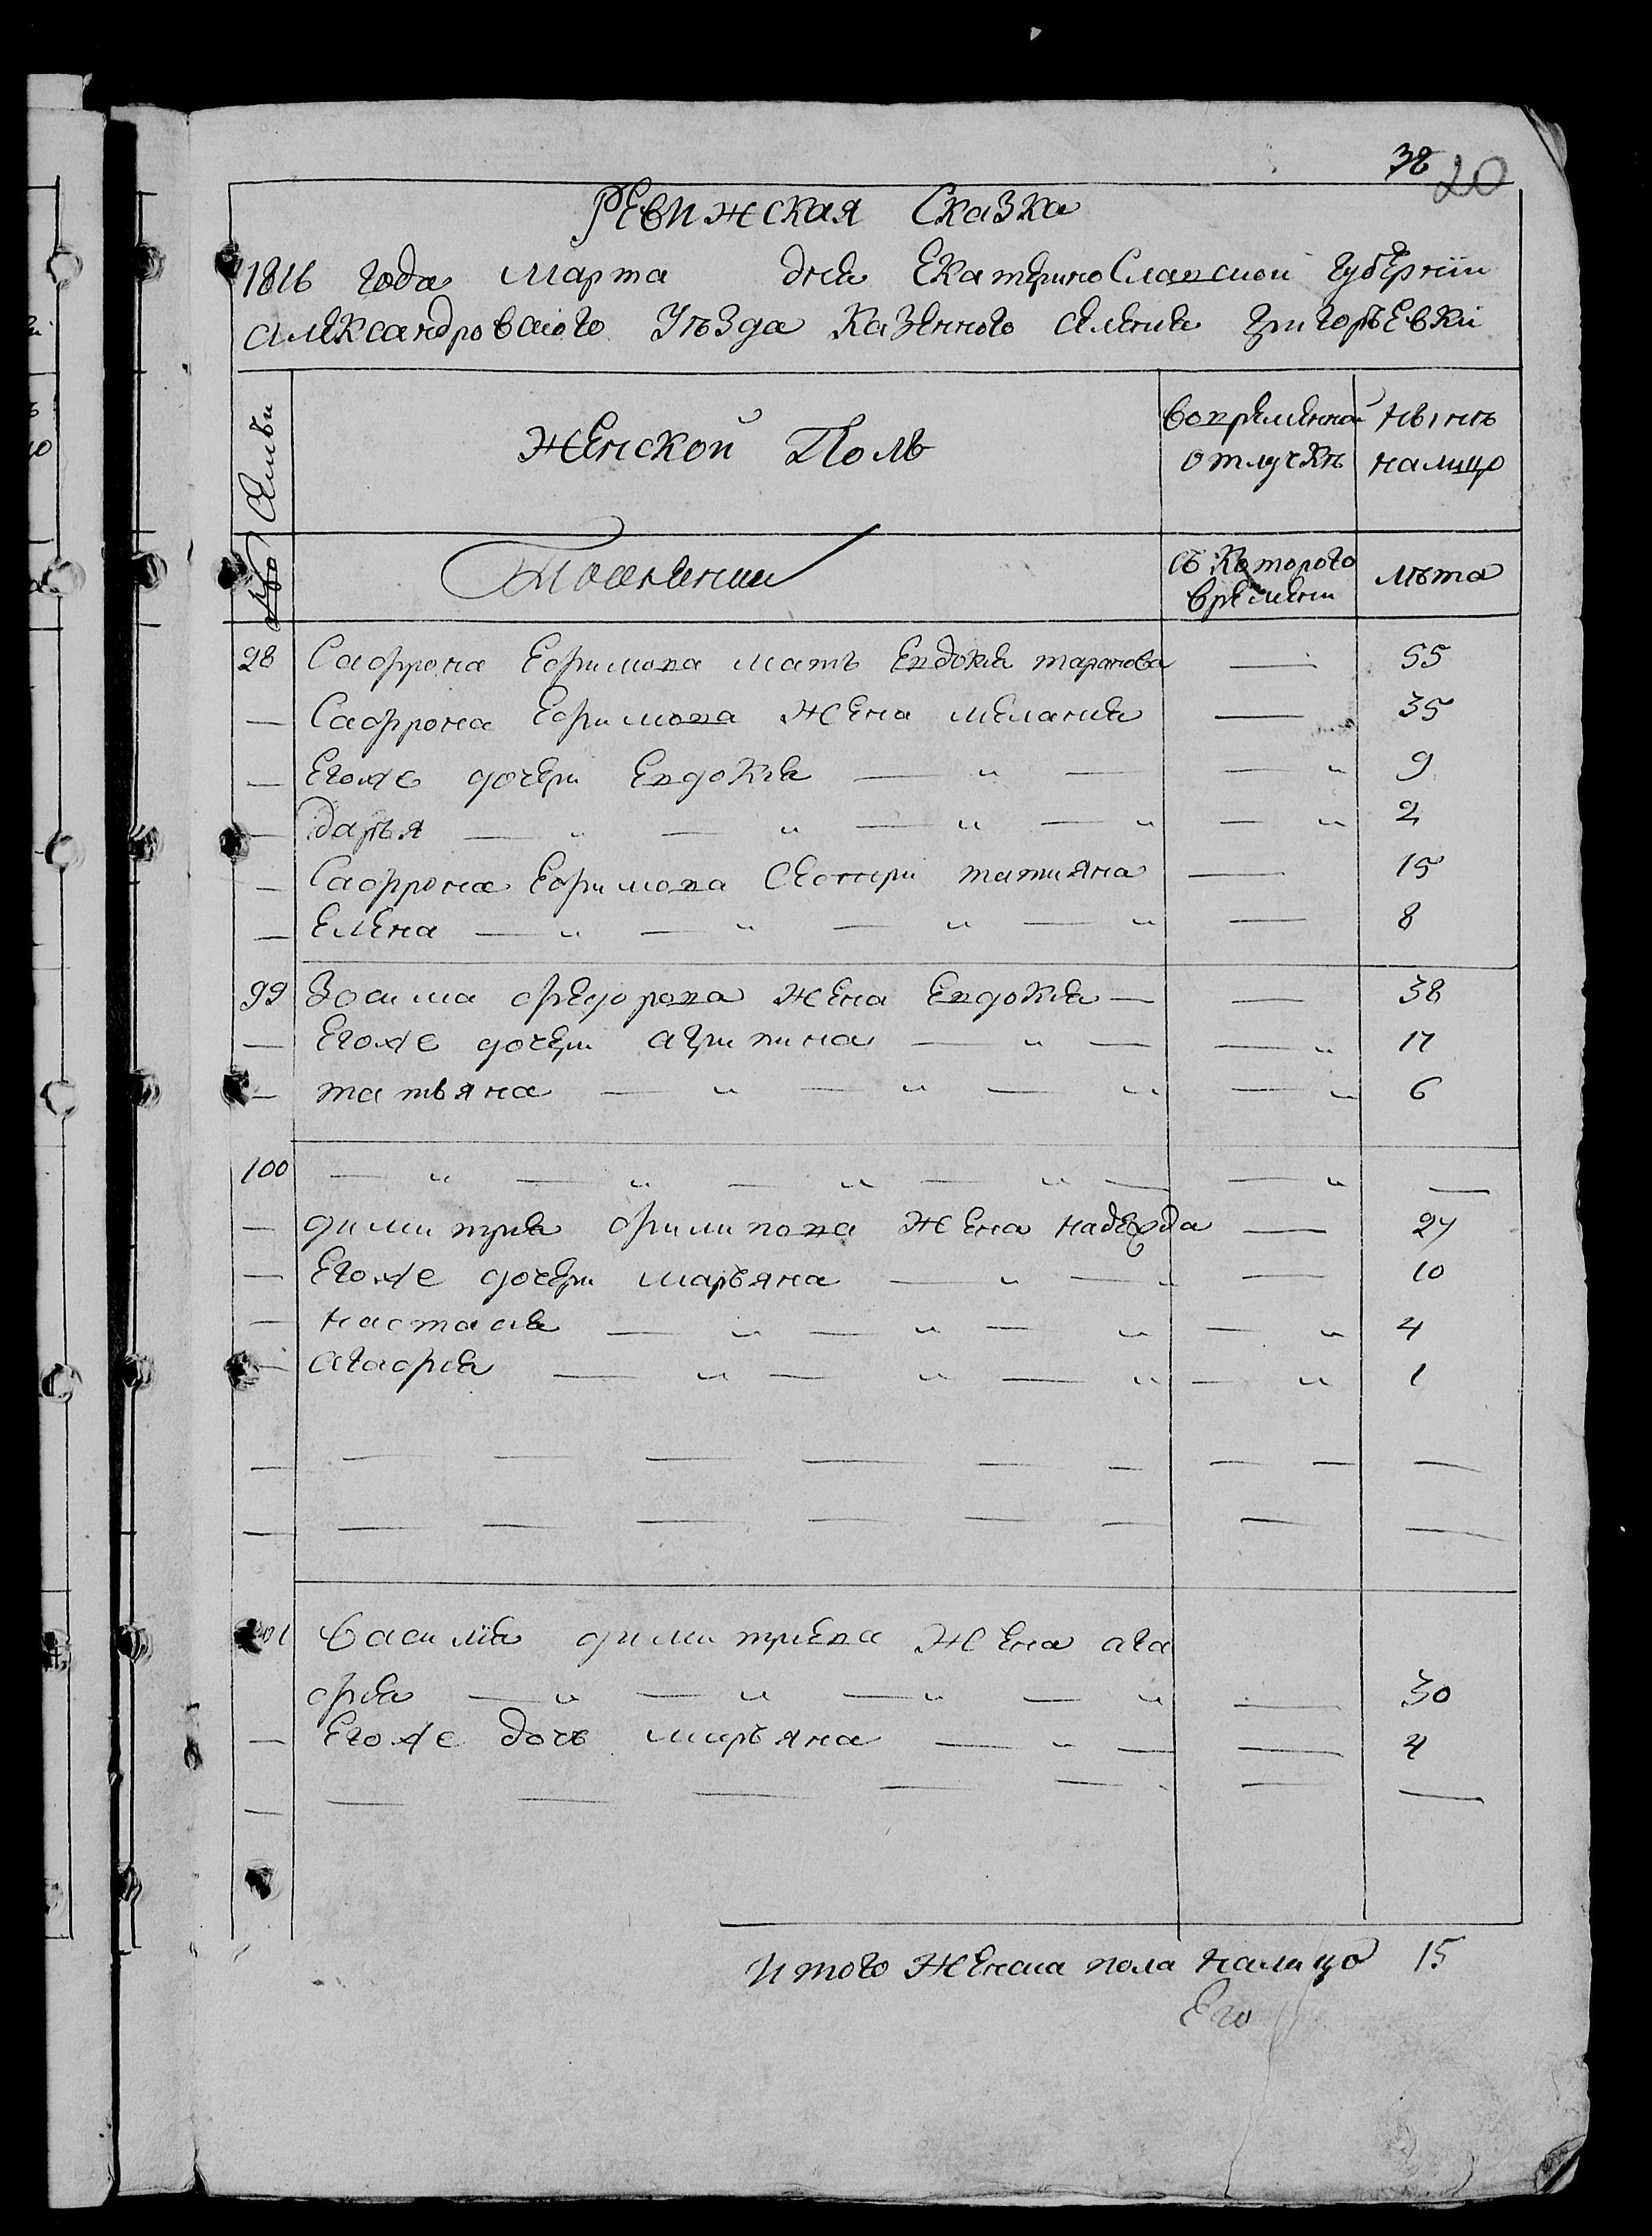 38
20
Ревижская Сказка
1816 года Марта дня Екатеринославской губерніи
Александровского Уъзда Казенного селения григоръевки
№ Семьи
Женской Полъ
вовременной отлучкъ
Нынъ налицо
Поселянии
съ Которого времени
лъта
98 Сафрона Ефимова мать Евдокия таранова — 55
— Сафрона Ефимова Жена мелания — 35
— Егоже дочери Евдокия — " — — " 9
— даръя — " — " — " — " — " 2
— Сафрона Ефимова Сестри татияна — 15
— Елена — " — " — " — " — 8
99 Зосима федорова Жена Евдокия — — 38
— Егоже дочери агрипина — " — — " 17
— татьяна — " — " — " — " 6
100 — " — " — " — " — — " —
— димитрия филипова Жена надежда — 27
— Егоже дочери маръяна — " — " — 10
— настасия — " — " — " — " 4
— Агафия — " — " — " — " 1
— — — — — — — — — —
— — — — — — — — —
101 василия димитриева Жена ага
фия — " — " — " — " — 30
— Егоже дочь маръяна — " — — 4
— — — — — — — —
Итого Женска пола налицо 15
Его